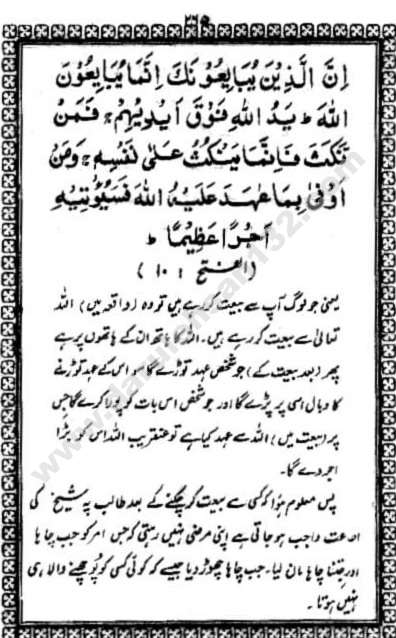 ۳۶۵
اِنَّ الَّذِیْنَ یُبَایِعُوْنَكَ اِنَّمَا یُبَایِعُوْنَ
اللهَ ؕ یَدُ اللهِ فَوْقَ اَیْدِیْهِمْ ۚ فَمَنْ
نَّكَثَ فَاِنَّمَا یَنْكُثُ عَلٰی نَفْسِهٖ ۚ وَمَنْ
اَوْفٰی بِمَا عٰهَدَ عَلَیْهُ اللهَ فَسَیُؤْتِیْهِ
اَجْرًا عَظِیْمًا ؕ
(الفتح : ۱۰)
یعنی جو لوگ آپ سے بیعت کر رہے ہیں تو وہ (واقعہ میں) اللہ
تعالیٰ سے بیعت کر رہے ہیں۔ اللہ کا ہاتھ ان کے ہاتھوں پر ہے
پھر (بعد بیعت کے) جو شخص عہد توڑے گا سو اس کے عہد توڑنے
کا وبال اسی پر پڑے گا اور جو شخص اس بات کو پورا کرے گا جس
پر (بیعت میں) اللہ سے عہد کیا ہے تو عنقریب اللہ اس کو بڑا
اجر دے گا۔
پس معلوم ہوا کہ کسی سے بیعت کر چکنے کے بعد طالب پہ شیخ کی
اطاعت واجب ہو جاتی ہے اپنی مرضی نہیں رہتی کہ جس امر کو جب چاہا
اور جتنا چاہا مان لیا۔ جب چاہا چھوڑ دیا جیسے کہ کوئی کسی کو پوچھنے والا ہی
نہیں ہوتا۔